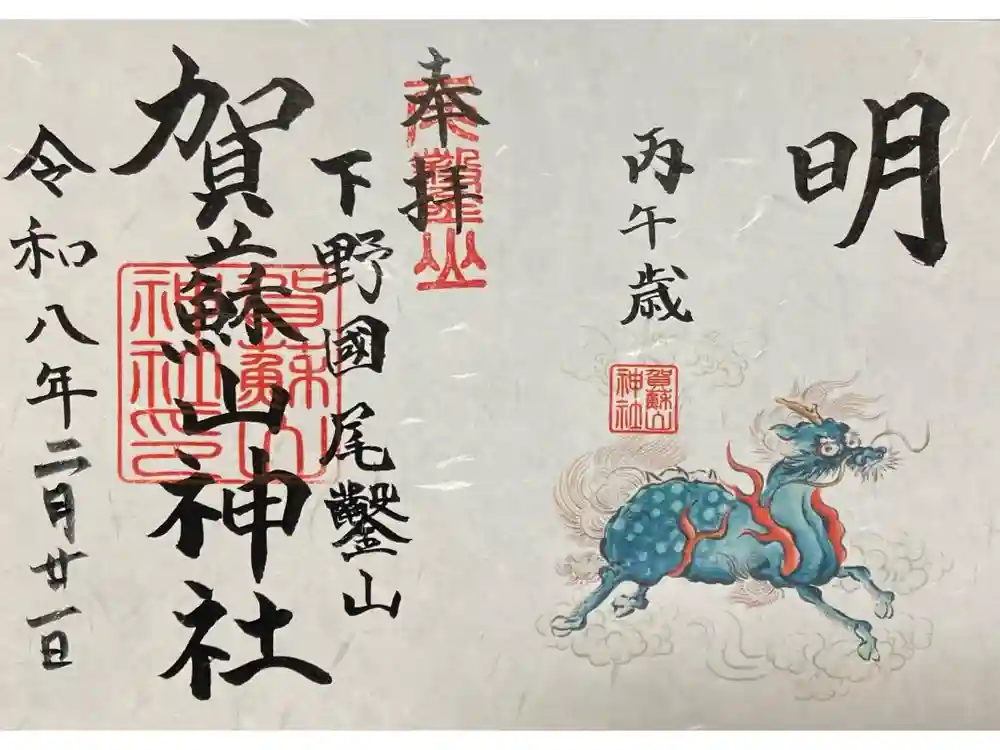 明
丙午歳
賀蘇山
神社
奉拝
下野國尾鑿山
賀蘇山神社
賀蘇山
神社印
令和八年二月廿一日